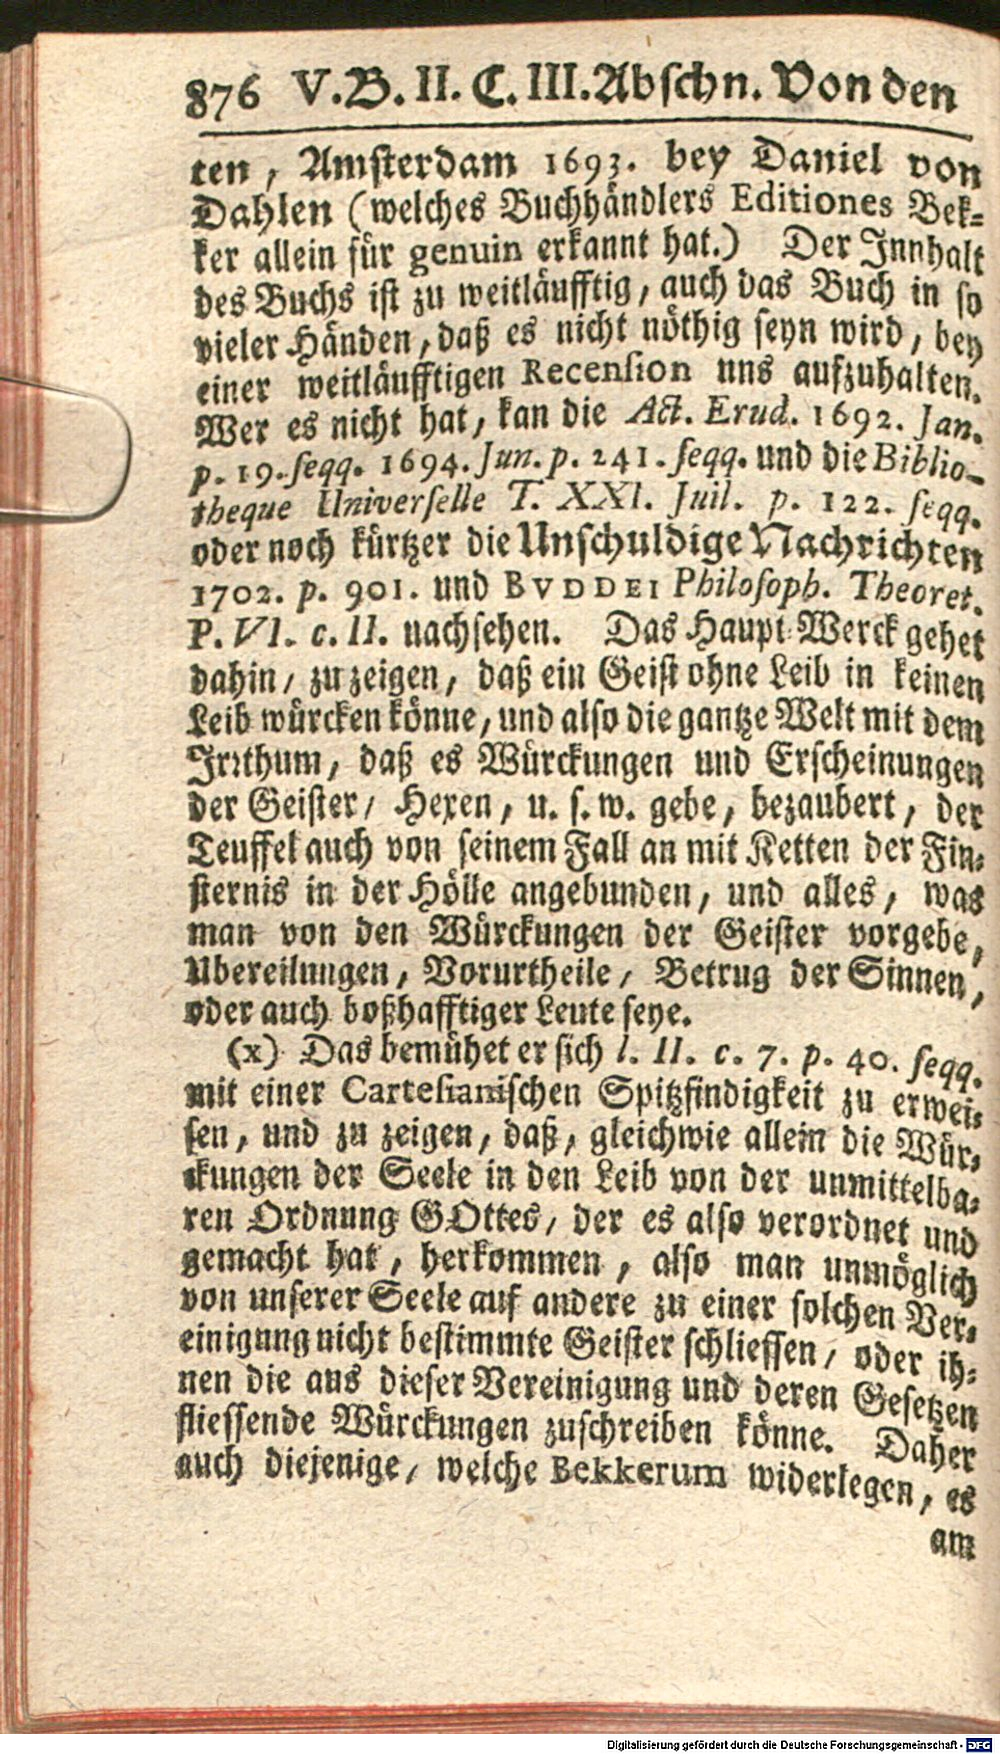 876 V. B. II. C. III. Abschn. Von den
ten, Amsterdam 1693. bey Daniel von
Dahlen (welches Buchhändlers Editiones Bek-
ker allein für genuin erkannt hat.) Der Innhalt
des Buchs ist zu weitläufftig, auch das Buch in so
vieler Händen, daß es nicht nöthig seyn wird, bey
einer weitläufftigen Recension uns aufzuhalten.
Wer es nicht hat, kan die Act. Erud. 1692. Jan.
p. 19. seqq. 1694. Jun. p. 241. seqq. und die Biblio-
theque Universelle T. XXI. Juil. p. 122. seqq.
oder noch kürtzer die Unschuldige Nachrichten
1702. p. 901. und BVDDEI Philosoph. Theoret.
P. VI. c. II. nachsehen. Das Haupt-Werck gehet
dahin, zu zeigen, daß ein Geist ohne Leib in keinen
Leib würcken könne, und also die gantze Welt mit dem
Irrthum, daß es Würckungen und Erscheinungen
der Geister, Hexen, u. s. w. gebe, bezaubert, der
Teuffel auch von seinem Fall an mit Ketten der Fin-
sternis in der Hölle angebunden, und alles, was
man von den Würckungen der Geister vorgebe,
Ubereilungen, Vorurtheile, Betrug der Sinnen,
oder auch boßhafftiger Leute seye.
(x) Das bemühet er sich l. II. c. 7. p. 40. seqq.
mit einer Cartesianischen Spitzfindigkeit zu erwei-
sen, und zu zeigen, daß, gleichwie allein die Wür-
ckungen der Seele in den Leib von der unmittelba-
ren Ordnung GOttes, der es also verordnet und
gemacht hat, herkommen, also man unmöglich
von unserer Seele auf andere zu einer solchen Ver-
einigung nicht bestimmte Geister schliessen, oder ih-
nen die aus dieser Vereinigung und deren Gesetzen
fliessende Würckungen zuschreiben könne. Daher
auch diejenige, welche Bekkerum widerlegen, es
am
Digitalisierung gefördert durch die Deutsche Forschungsgemeinschaft - DFG